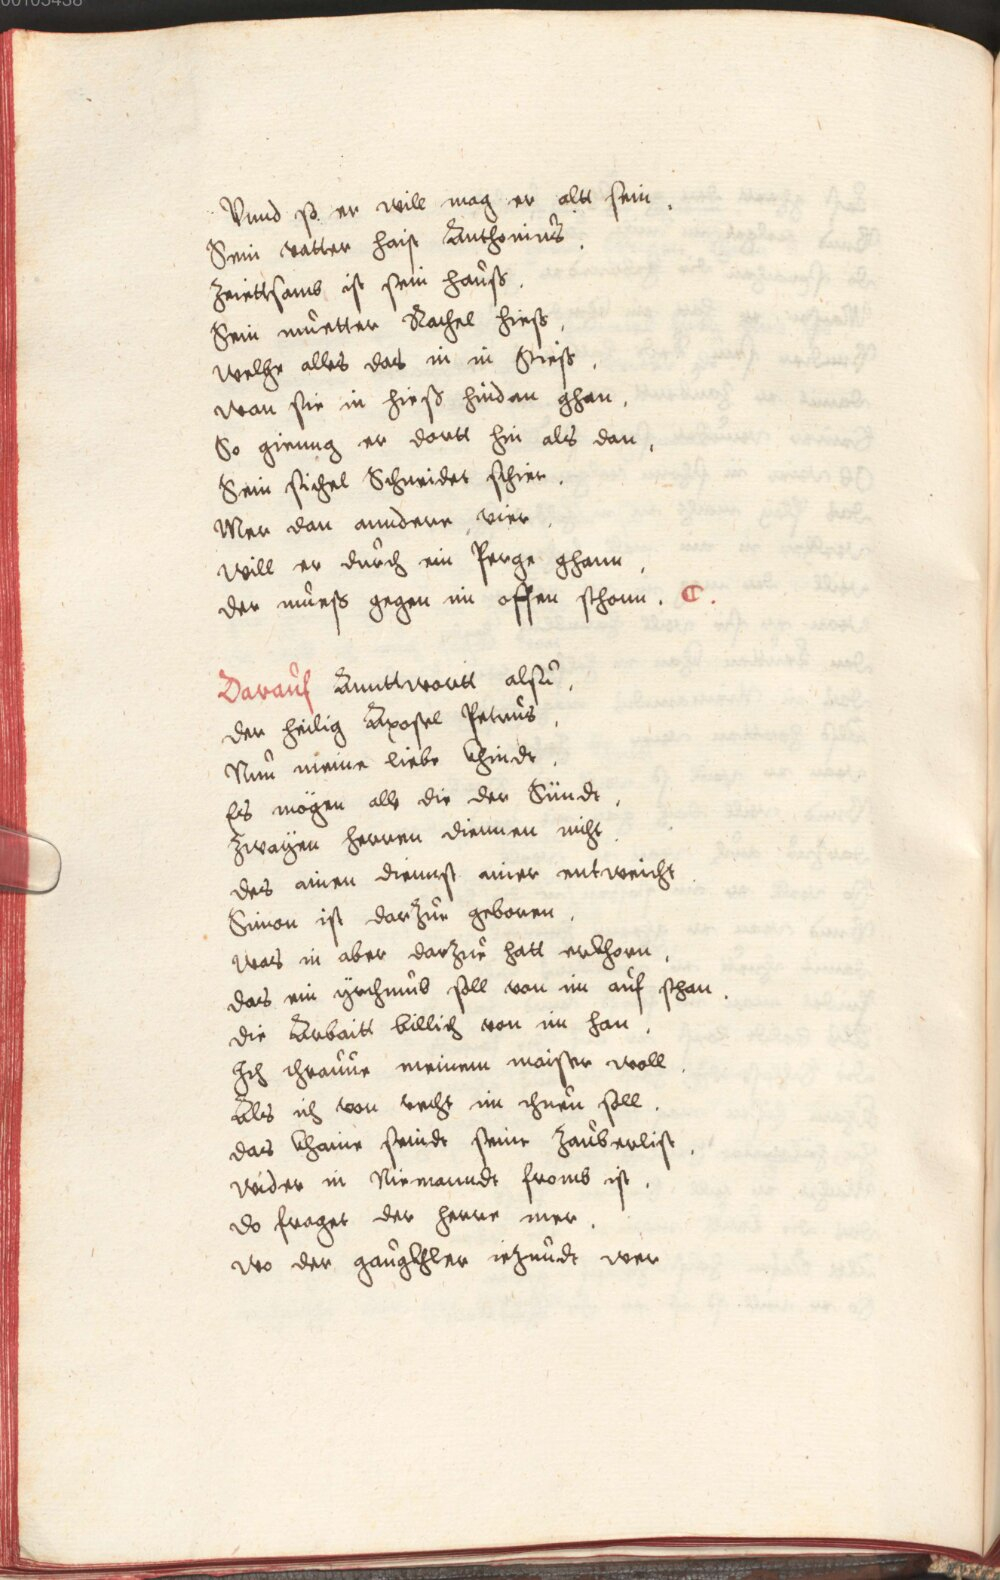 00105458
Vnnd so er will mag er altt sein.
Sein vatter haist Anthonius.
Zeiettsamb ist sein hauß.
Sein muetter Rachel hieß.
welche alles das in in Stieß.
wan sie in hieß hindan ghan.
So gienng er dortt hin als dan.
Sein sichel Schneidet schier.
Mer dan anndere vier.
will er durch ein Perge ghann.
der mueß gegen im offen schonn. C.
Darauf Anntwortt alsu.
der heilig Apostel Petrus.
Nun meine liebe khindt.
Es mögen alle die der Sündt.
Zwayen herren diennen nicht
des ainen diennst ainer entweicht.
Simon ist darzue geboren.
was in aber darzue hatt erkhorn.
das ein yrchnub soll von im auf schan.
die Arbaitt billich von im han.
Ich thrauue meinem maister woll.
Als ich von recht im thuen soll.
das khaine seindt seine Zauberlist.
wider in Niemanndt fromb ist.
do fraget der herre mer.
wo der gaugkhler iezundt wer